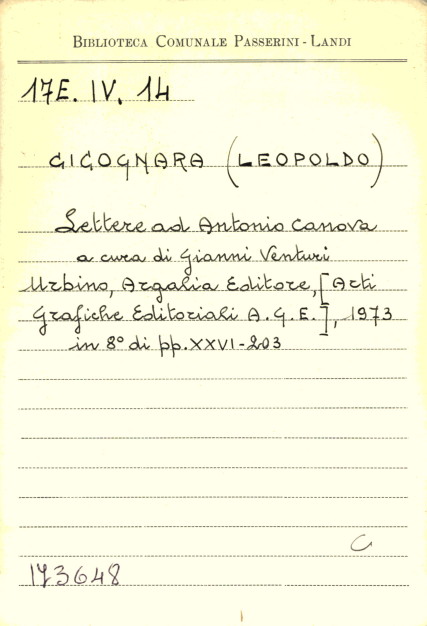 BIBLIOTECA COMUNALE PASSERINI-LANDI
17E. IV. 14
CICOGNARA (LEOPOLDO)
Lettere ad Antonio Canova
a cura di Gianni Venturi
Urbino, Argalia Editore, [Arti
Grafiche Editoriali A.G.E.], 1973
in 8º di pp. XXVI-203
C
173648